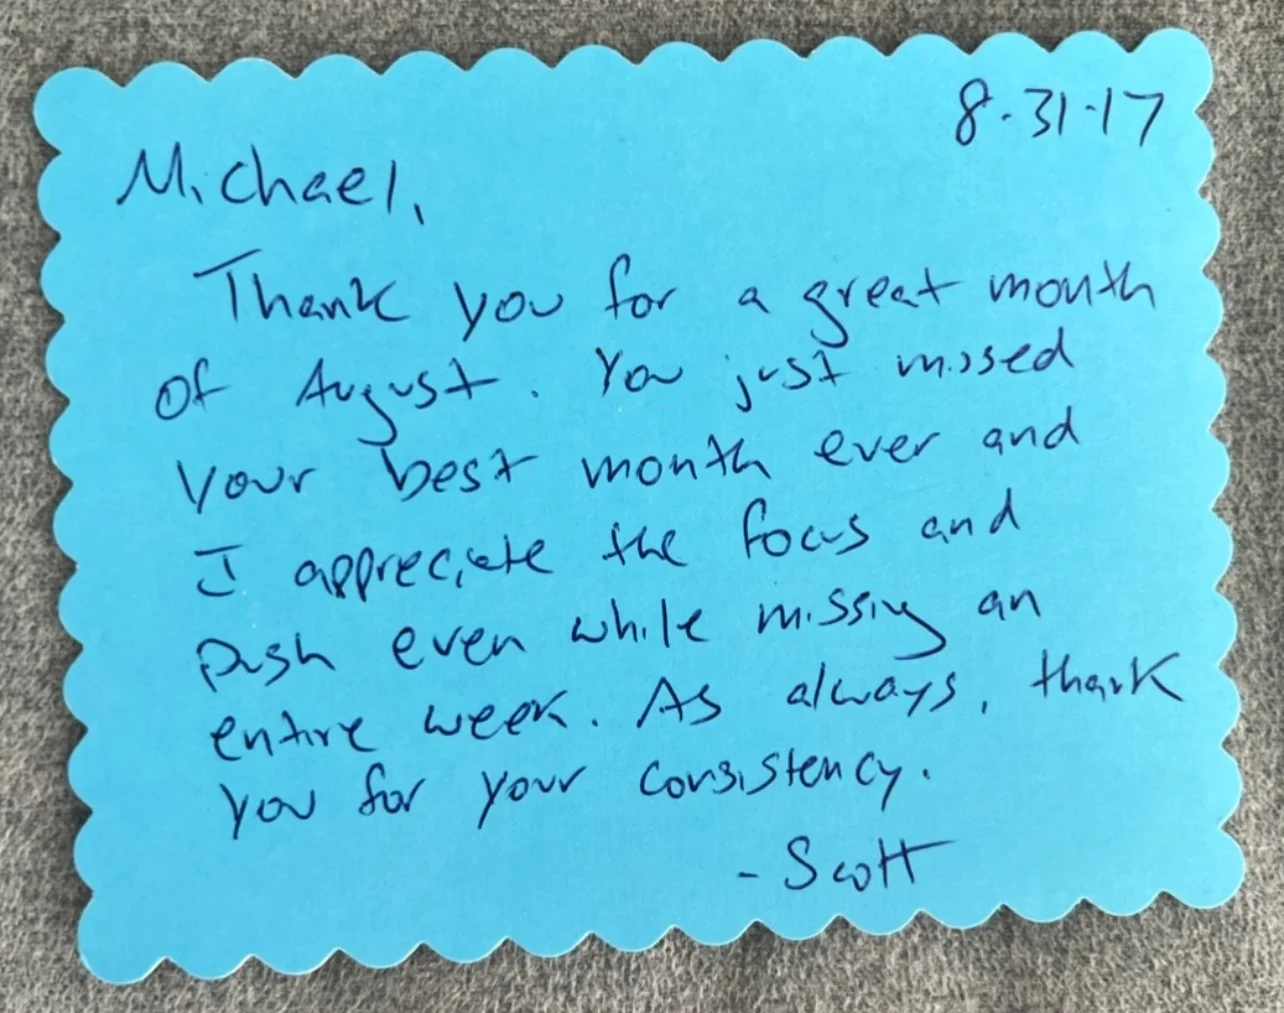 8.31.17
Michael,
Thank you for a great month
of August. You just missed
your best month ever and
I appreciate the focus and
push even while missing an
entire week. As always, thank
you for your consistency.
- Scott